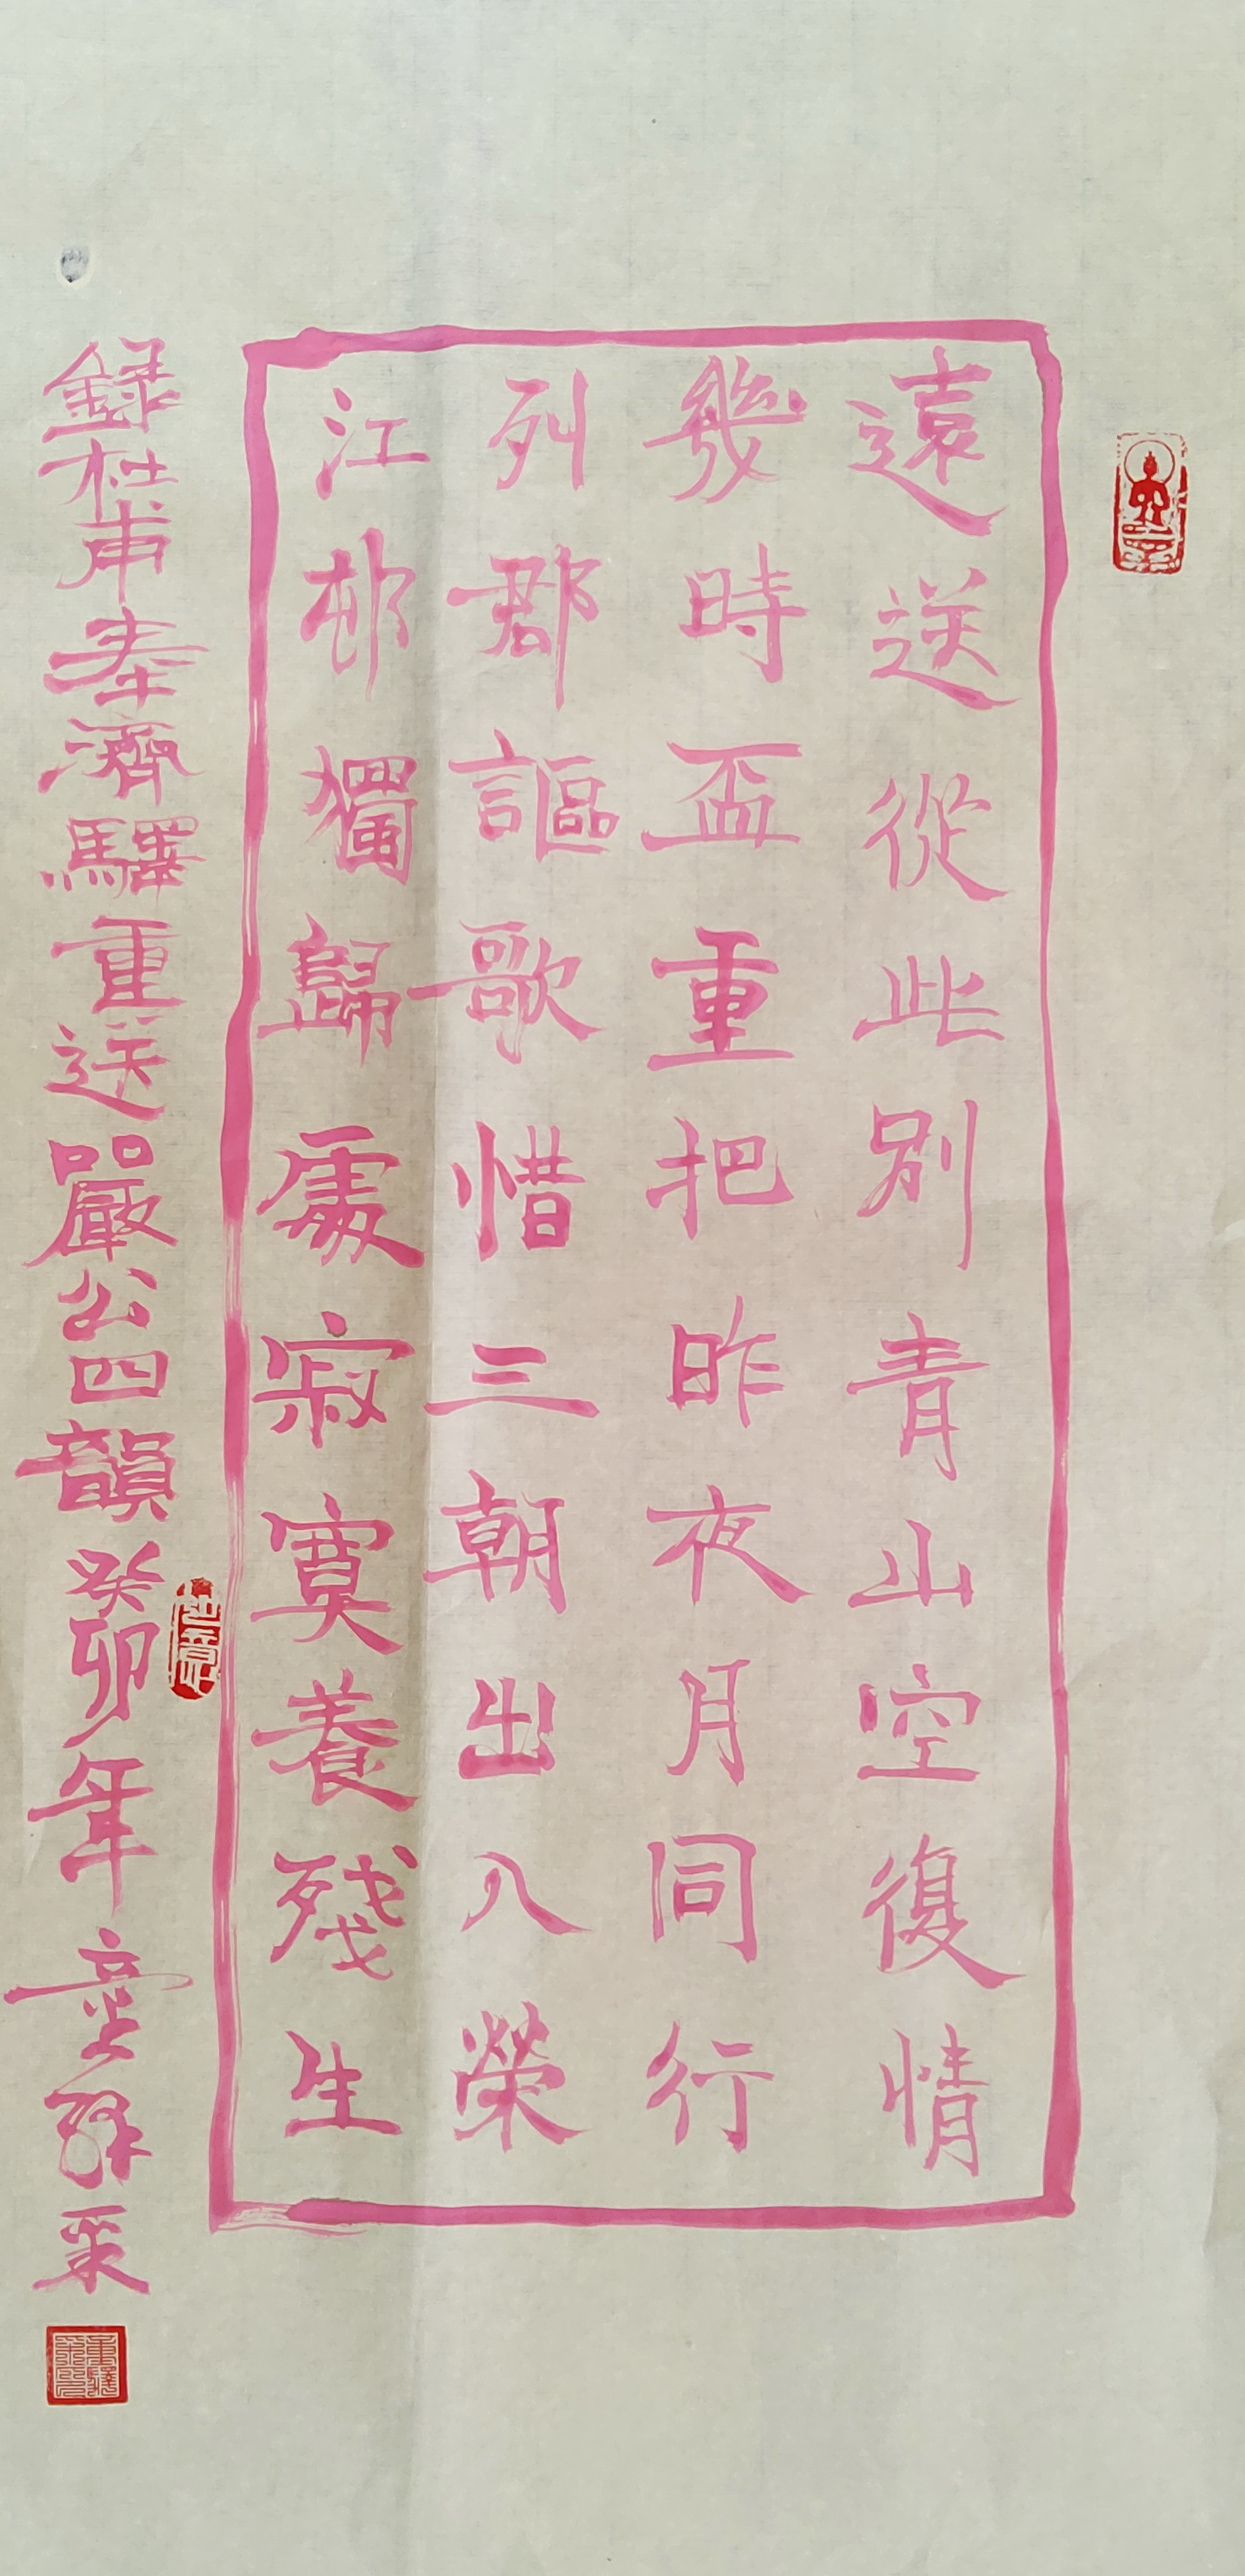 遠送從此別青山空復情
幾時盃重把昨夜月同行
列郡謳歌惜三朝出入榮
江邨獨歸處寂寞養殘生
錄杜甫奉濟驛重送嚴公四韻癸卯年童